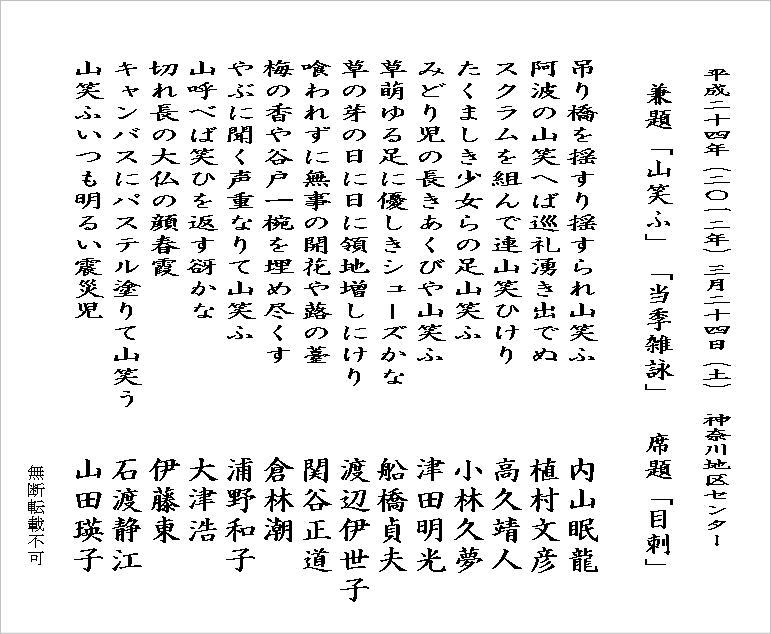 平成二十四年(二〇一二年)三月二十四日(土) 神奈川地区センター
兼題「山笑ふ」「当季雑詠」 席題「目刺」
吊り橋を揺すり揺すられ山笑ふ 内山眠龍
阿波の山笑へば巡礼湧き出でぬ 植村文彦
スクラムを組んで連山笑ひけり 高久靖人
たくましき少女らの足山笑ふ 小林久夢
みどり児の長きあくびや山笑ふ 津田明光
草萌ゆる足に優しきシューズかな 船橋貞夫
草の芽の日に日に領地増しにけり 渡辺伊世子
喰われずに無事の開花や蕗の薹 関谷正道
梅の香や谷戸一椀を埋め尽くす 倉林潮
やぶに聞く声重なりて山笑ふ 浦野和子
山呼べば笑ひを返す谺かな 大津浩
切れ長の大仏の顔春霞 伊藤東
キャンバスにパステル塗りて山笑う 石渡静江
山笑ふいつも明るい震災児 山田瑛子
無断転載不可